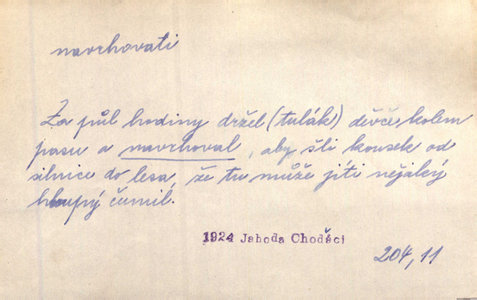 navrhovati
Za půl hodiny držel (tulák) děvče kolem
pasu a navrhoval, aby šli kousek od
silnice do lesa, že tu může jíti nějaký
hloupý čumil.
1924 Jahoda Choděci
204,11